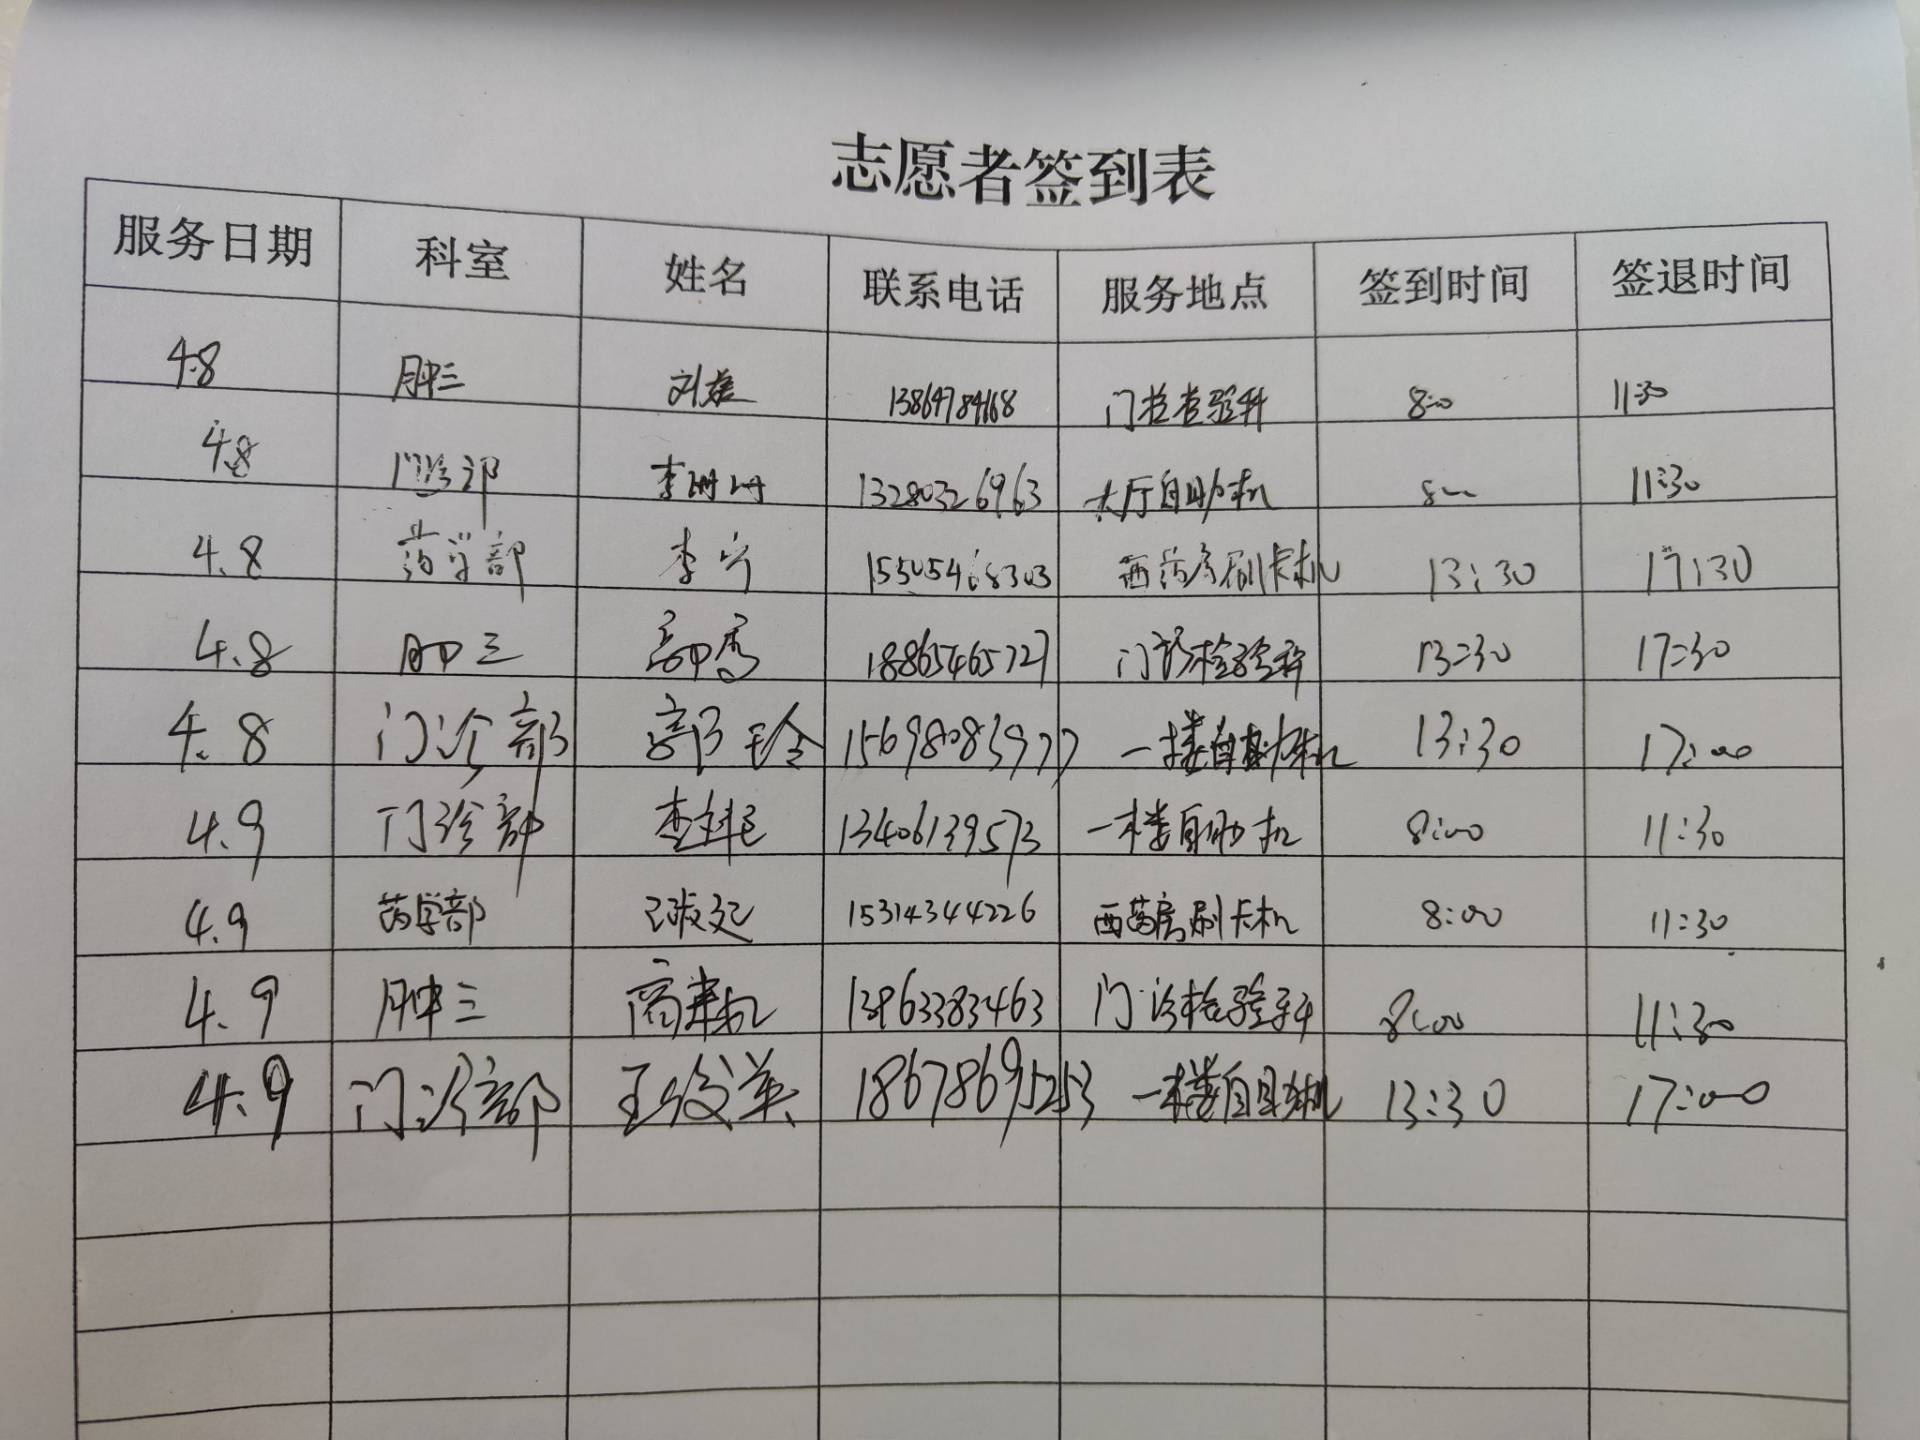 志愿者签到表
服务日期 科室 姓名 联系电话 服务地点 签到时间 签退时间
4.8 肿三 刘 13864784168 门诊检验科 8:00 11:30
4.8 门诊部 李珊珊 13280326963 大厅自助机 8:00 11:30
4.8 药学部 李宁 15505468303 西药房刷卡机 13:30 17:30
4.8 肿三 18865465727 门诊检验科 13:30 17:30
4.8 门诊部 郭玲 15698083977 一楼自助机 13:30 17:00
4.9 门诊部 13406139573 一楼自助机 8:00 11:30
4.9 药学部 15314344226 西药房刷卡机 8:00 11:30
4.9 肿三 13963383463 门诊检验科 8:00 11:30
4.9 门诊部 王俊英 18678695253 一楼自助机 13:30 17:00